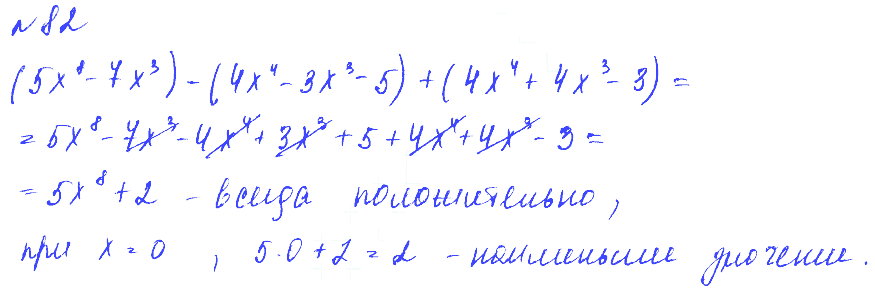 № 82
(5x⁸ - 7x³) - (4x⁴ - 3x³ - 5) + (4x⁴ + 4x³ - 3) =
= 5x⁸ - 7x³ - 4x⁴ + 3x³ + 5 + 4x⁴ + 4x³ - 3 =
= 5x⁸ + 2 - всегда положительно,
при x = 0 , 5·0 + 2 = 2 - наименьшее значение.